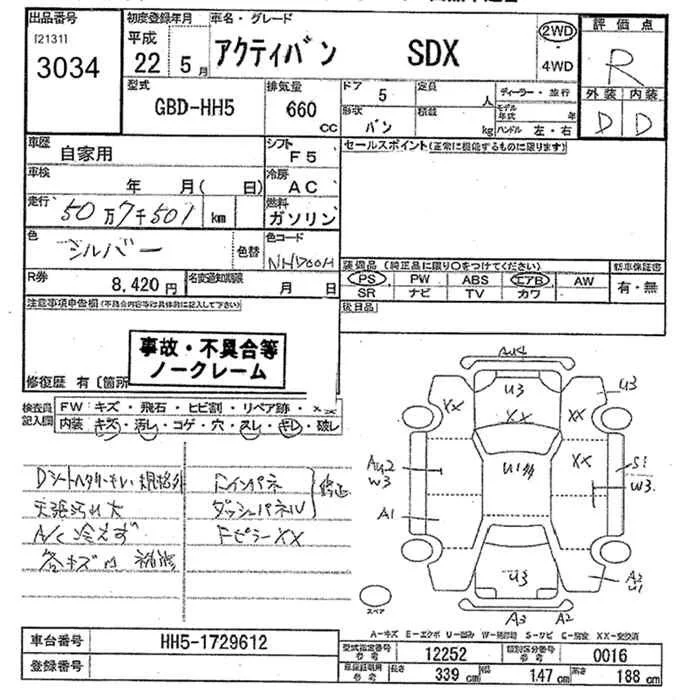 出品番号 初度登録年月 車名・グレード 2WD 評価点
[2131] 平成 アクティバン SDX R
3034 22年 5月 4WD
型式 排気量 ドア 5 定員 人 ディーラー・並行 外装 内装
GBD-HH5 660 cc 形状 バン 積載 kg モデル年式 年 D D
ハンドル 左・右
車歴 自家用 シフト F5 セールスポイント(正常に機能するものに限ります)
車検 年 月( 日) 冷房 AC
走行 50万7千501 km 燃料 ガソリン
色 シルバー 色替 色コード NHD00H
装備品(純正品に限り○をつけてください) 新車保証書
R券 8,420円 名変通知期限 月 日 PS PW ABS エアB AW 有・無
SR ナビ TV カワ
注意事項申告欄(不具合内容等は具体的に記入して下さい) 後日品
事故・不具合等
ノークレーム
修復歴 有 [箇所
検査員記入欄 FW キズ・飛石・ヒビ割・リペア跡・××
内装 キズ・汚レ・コゲ・穴・スレ・キレ・破レ
規格外 Fインパネ 修正
天張汚れ大 ダッシュパネル
A/C 冷えず FピラーXX
各キズ凹 補修
U3 U3
XX XX XX
A2 W3 U1 XX S1
W3
A1
U3 A2
U1
スペア A3 A2
A-キズ E-エクボ U-凹み W-補修跡 S-サビ C-腐食 XX-交換済
車台番号 HH5-1729612 型式指定番号 参考 12252 類別区分番号 参考 0016
登録番号 車庫証明用 参考 長さ 339 cm 幅 147 cm 高さ 188 cm